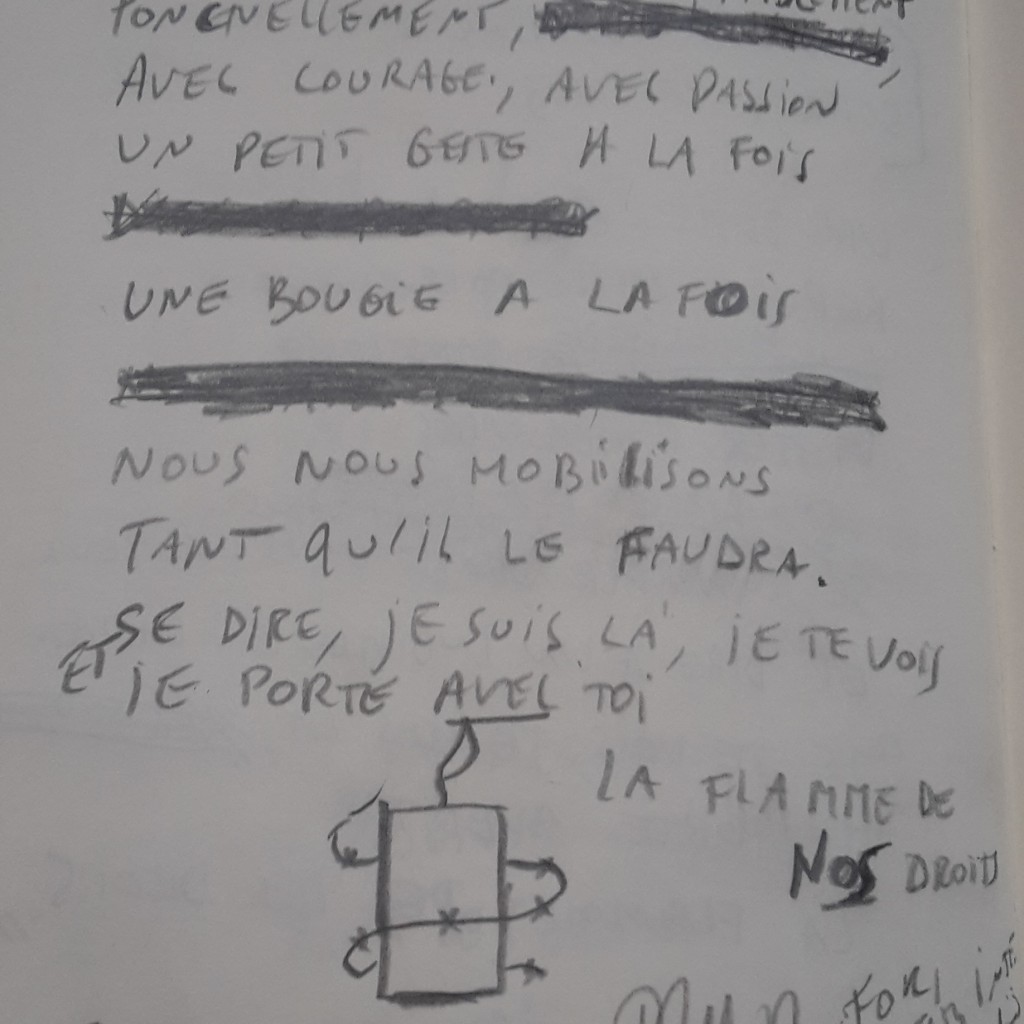 AVEC COURAGE, AVEC PASSION
UN PETIT GESTE A LA FOIS
UNE BOUGIE A LA FOIS
NOUS NOUS MOBILISONS
TANT QU'IL LE FAUDRA.
SE DIRE, JE SUIS LÀ, JE TE VOIS
ET JE PORTE AVEC TOI
LA FLAMME DE
NOS DROITS